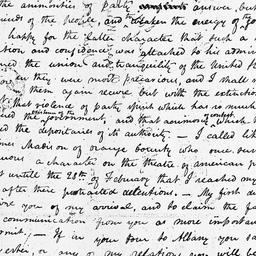 the animosities of party answer, but
minds of the people, and awaken the energy of go
happy for the latter character that such a
ation and confidence was attached to his admin
ned the union and tranquility of the United St
they were most precarious, and I shall n
them again recur but with the extinction
that violence of party spirit which has so much
ed the government, and that animosity which
ed the depositaries of its authority — I called
mer of orange bounty who once ser
uous a character on the theatre of american po
not untill the 28th of February that I reached my
after these protracted detentions. — My first de
ize you of my arrival, and to claim the fa
communication from you as more important
omit. — If in your tour to Albany you sa
ester, or any of my relations you will be